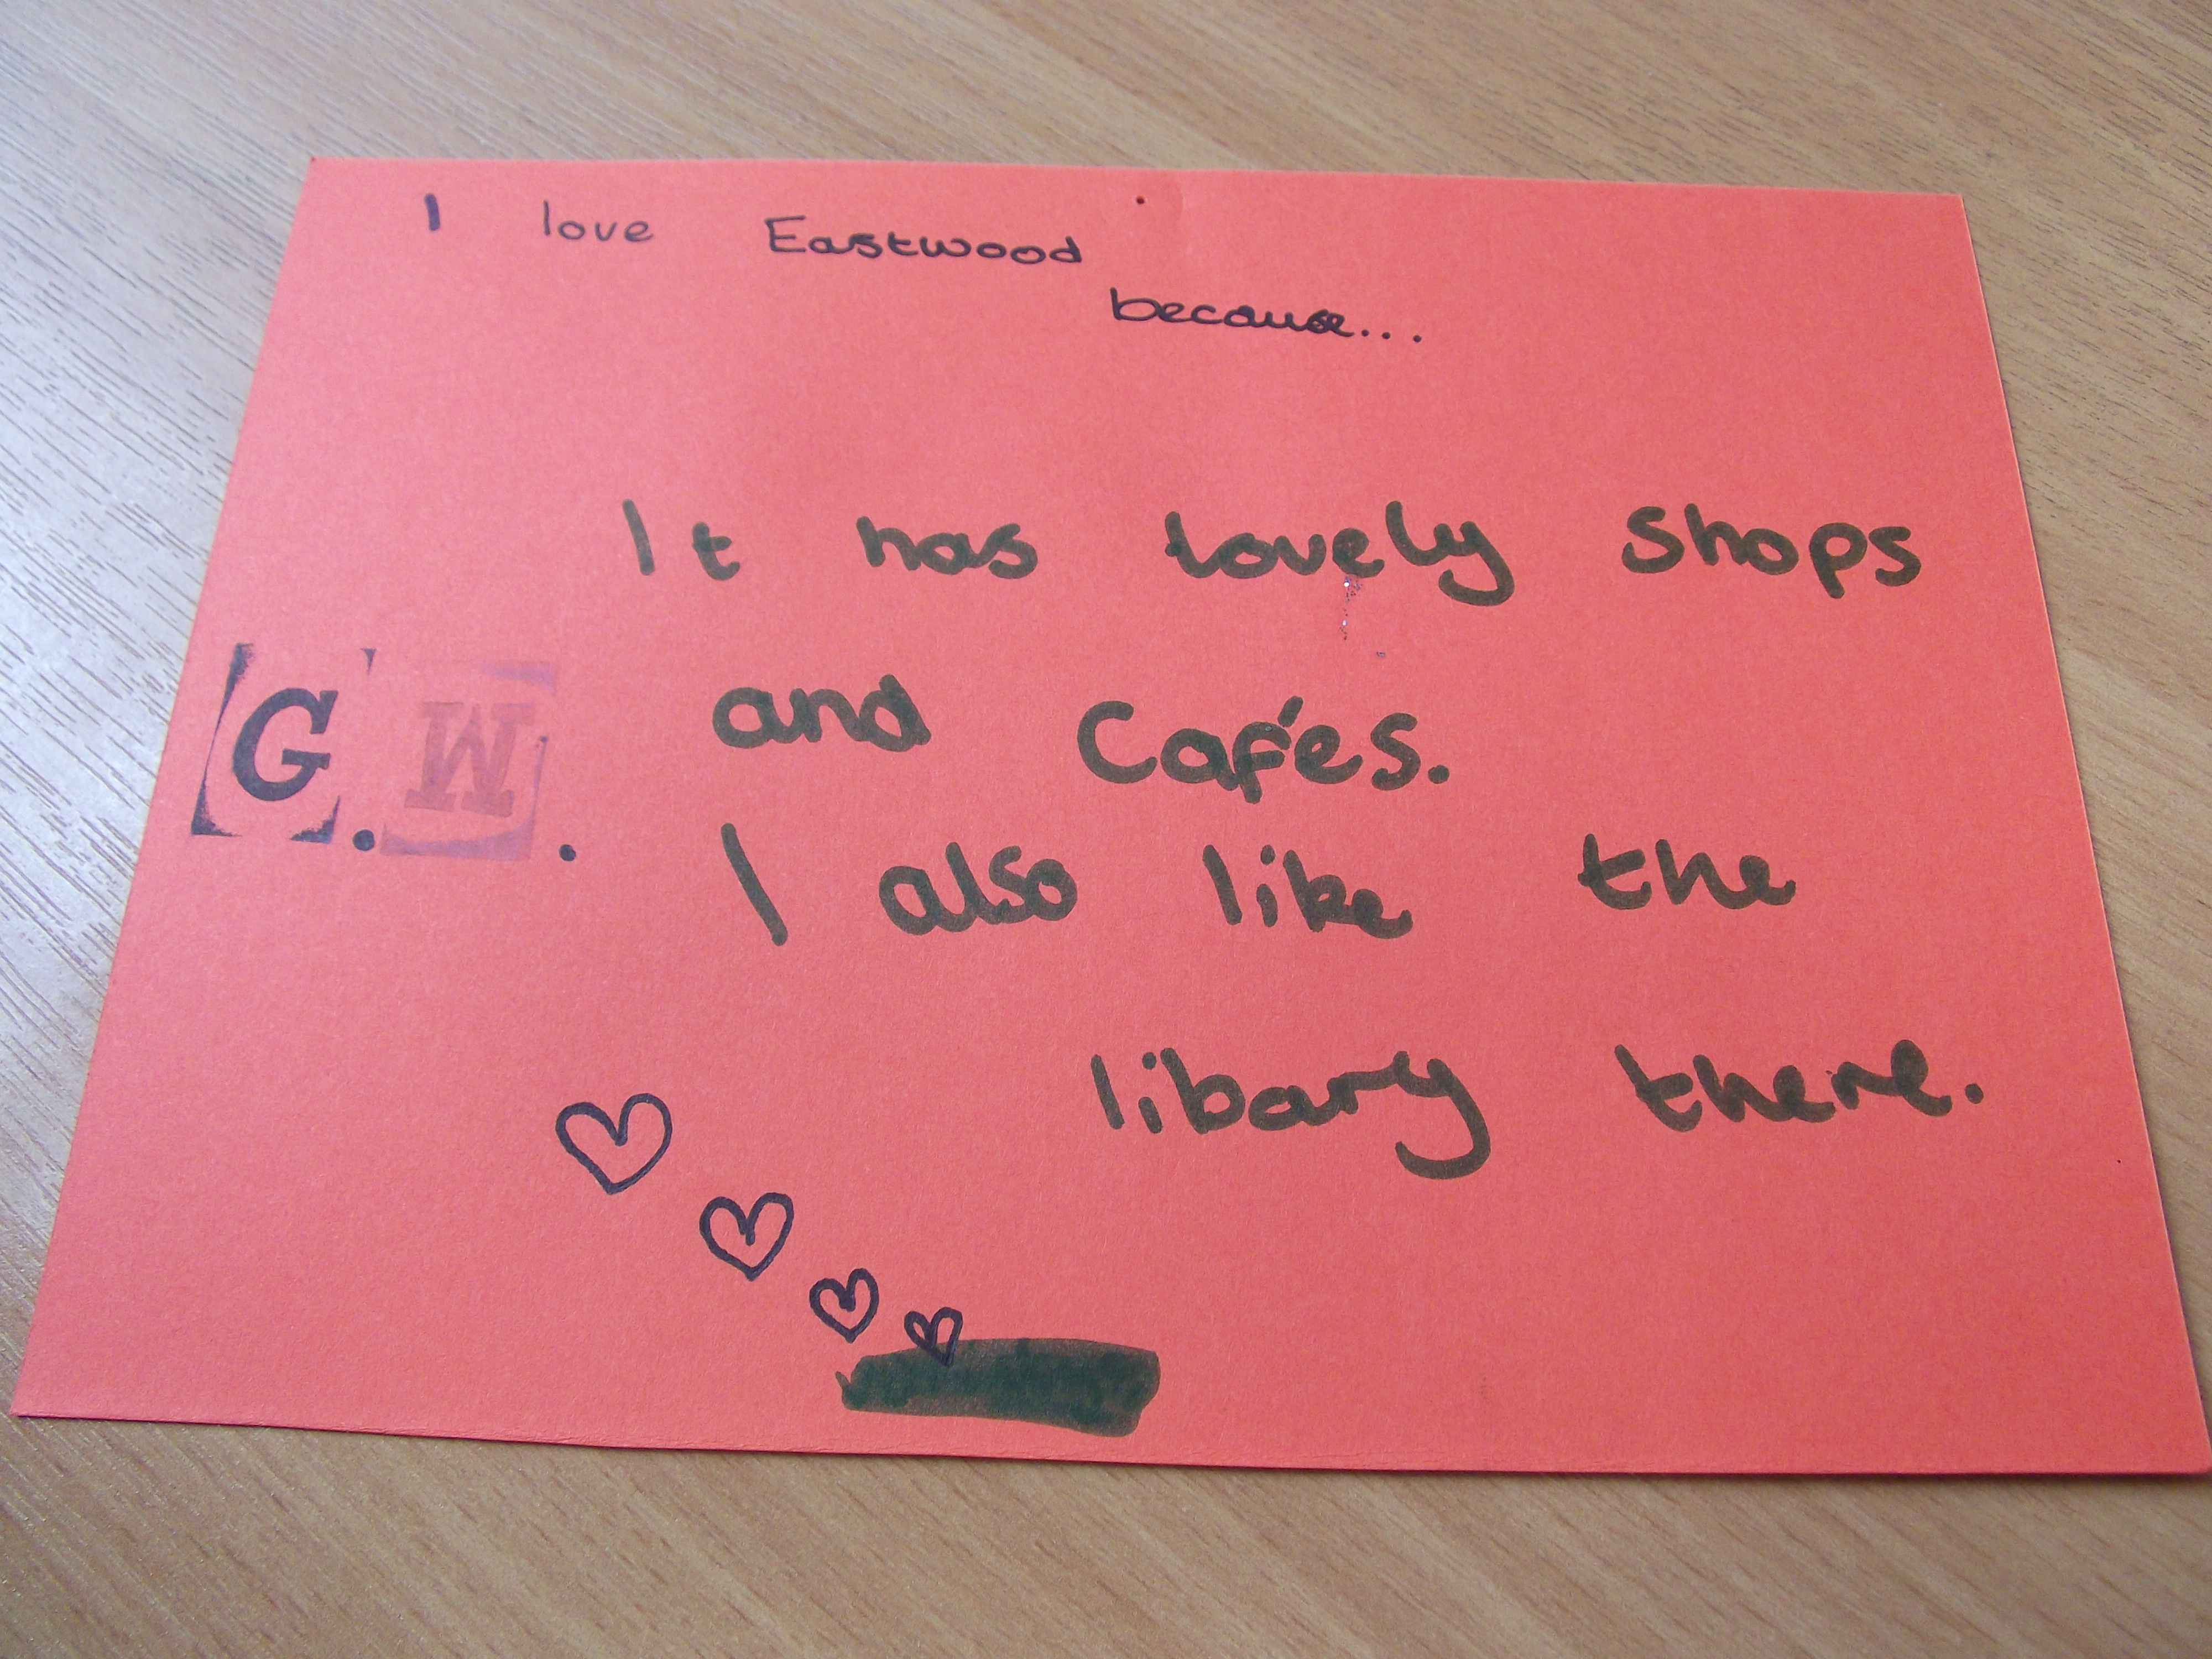 I love Eastwood
because...
It has lovely shops
and Cafés.
G.M.
I also like the
libary there.